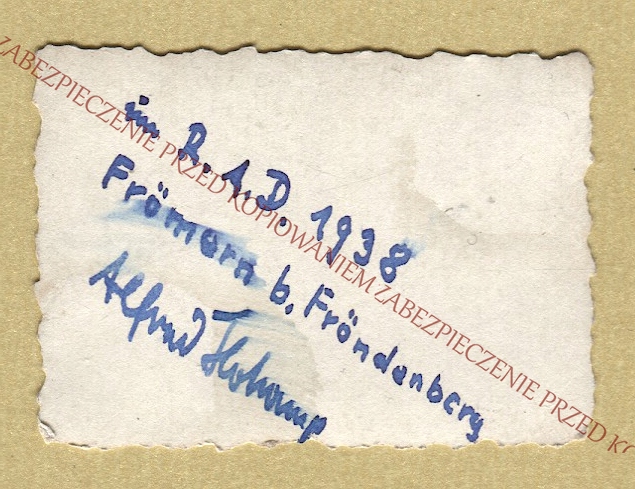 ZABEZPIECZENIE PRZED KOPIOWANIEM ZABEZPIECZENIE PRZED KO
im R.A.D. 1938
Frömern b. Fröndenberg
Alfred